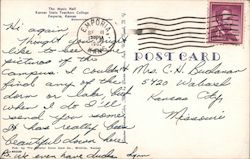 The Music Hall
Kansas State Teachers College
Emporia, Kansas
EMPORIA
KAN
POST CARD
Hi again,
Thought you might
like to see some
pictures of the
campus. I couldn't
find any of the
dorm or lake but
when I do I'll
send you some.
It has really been
beautiful down here
We even have ducks. Lynn
Mrs C. H. Buchanan
5720 Wabash
Kansas City,
Missouri